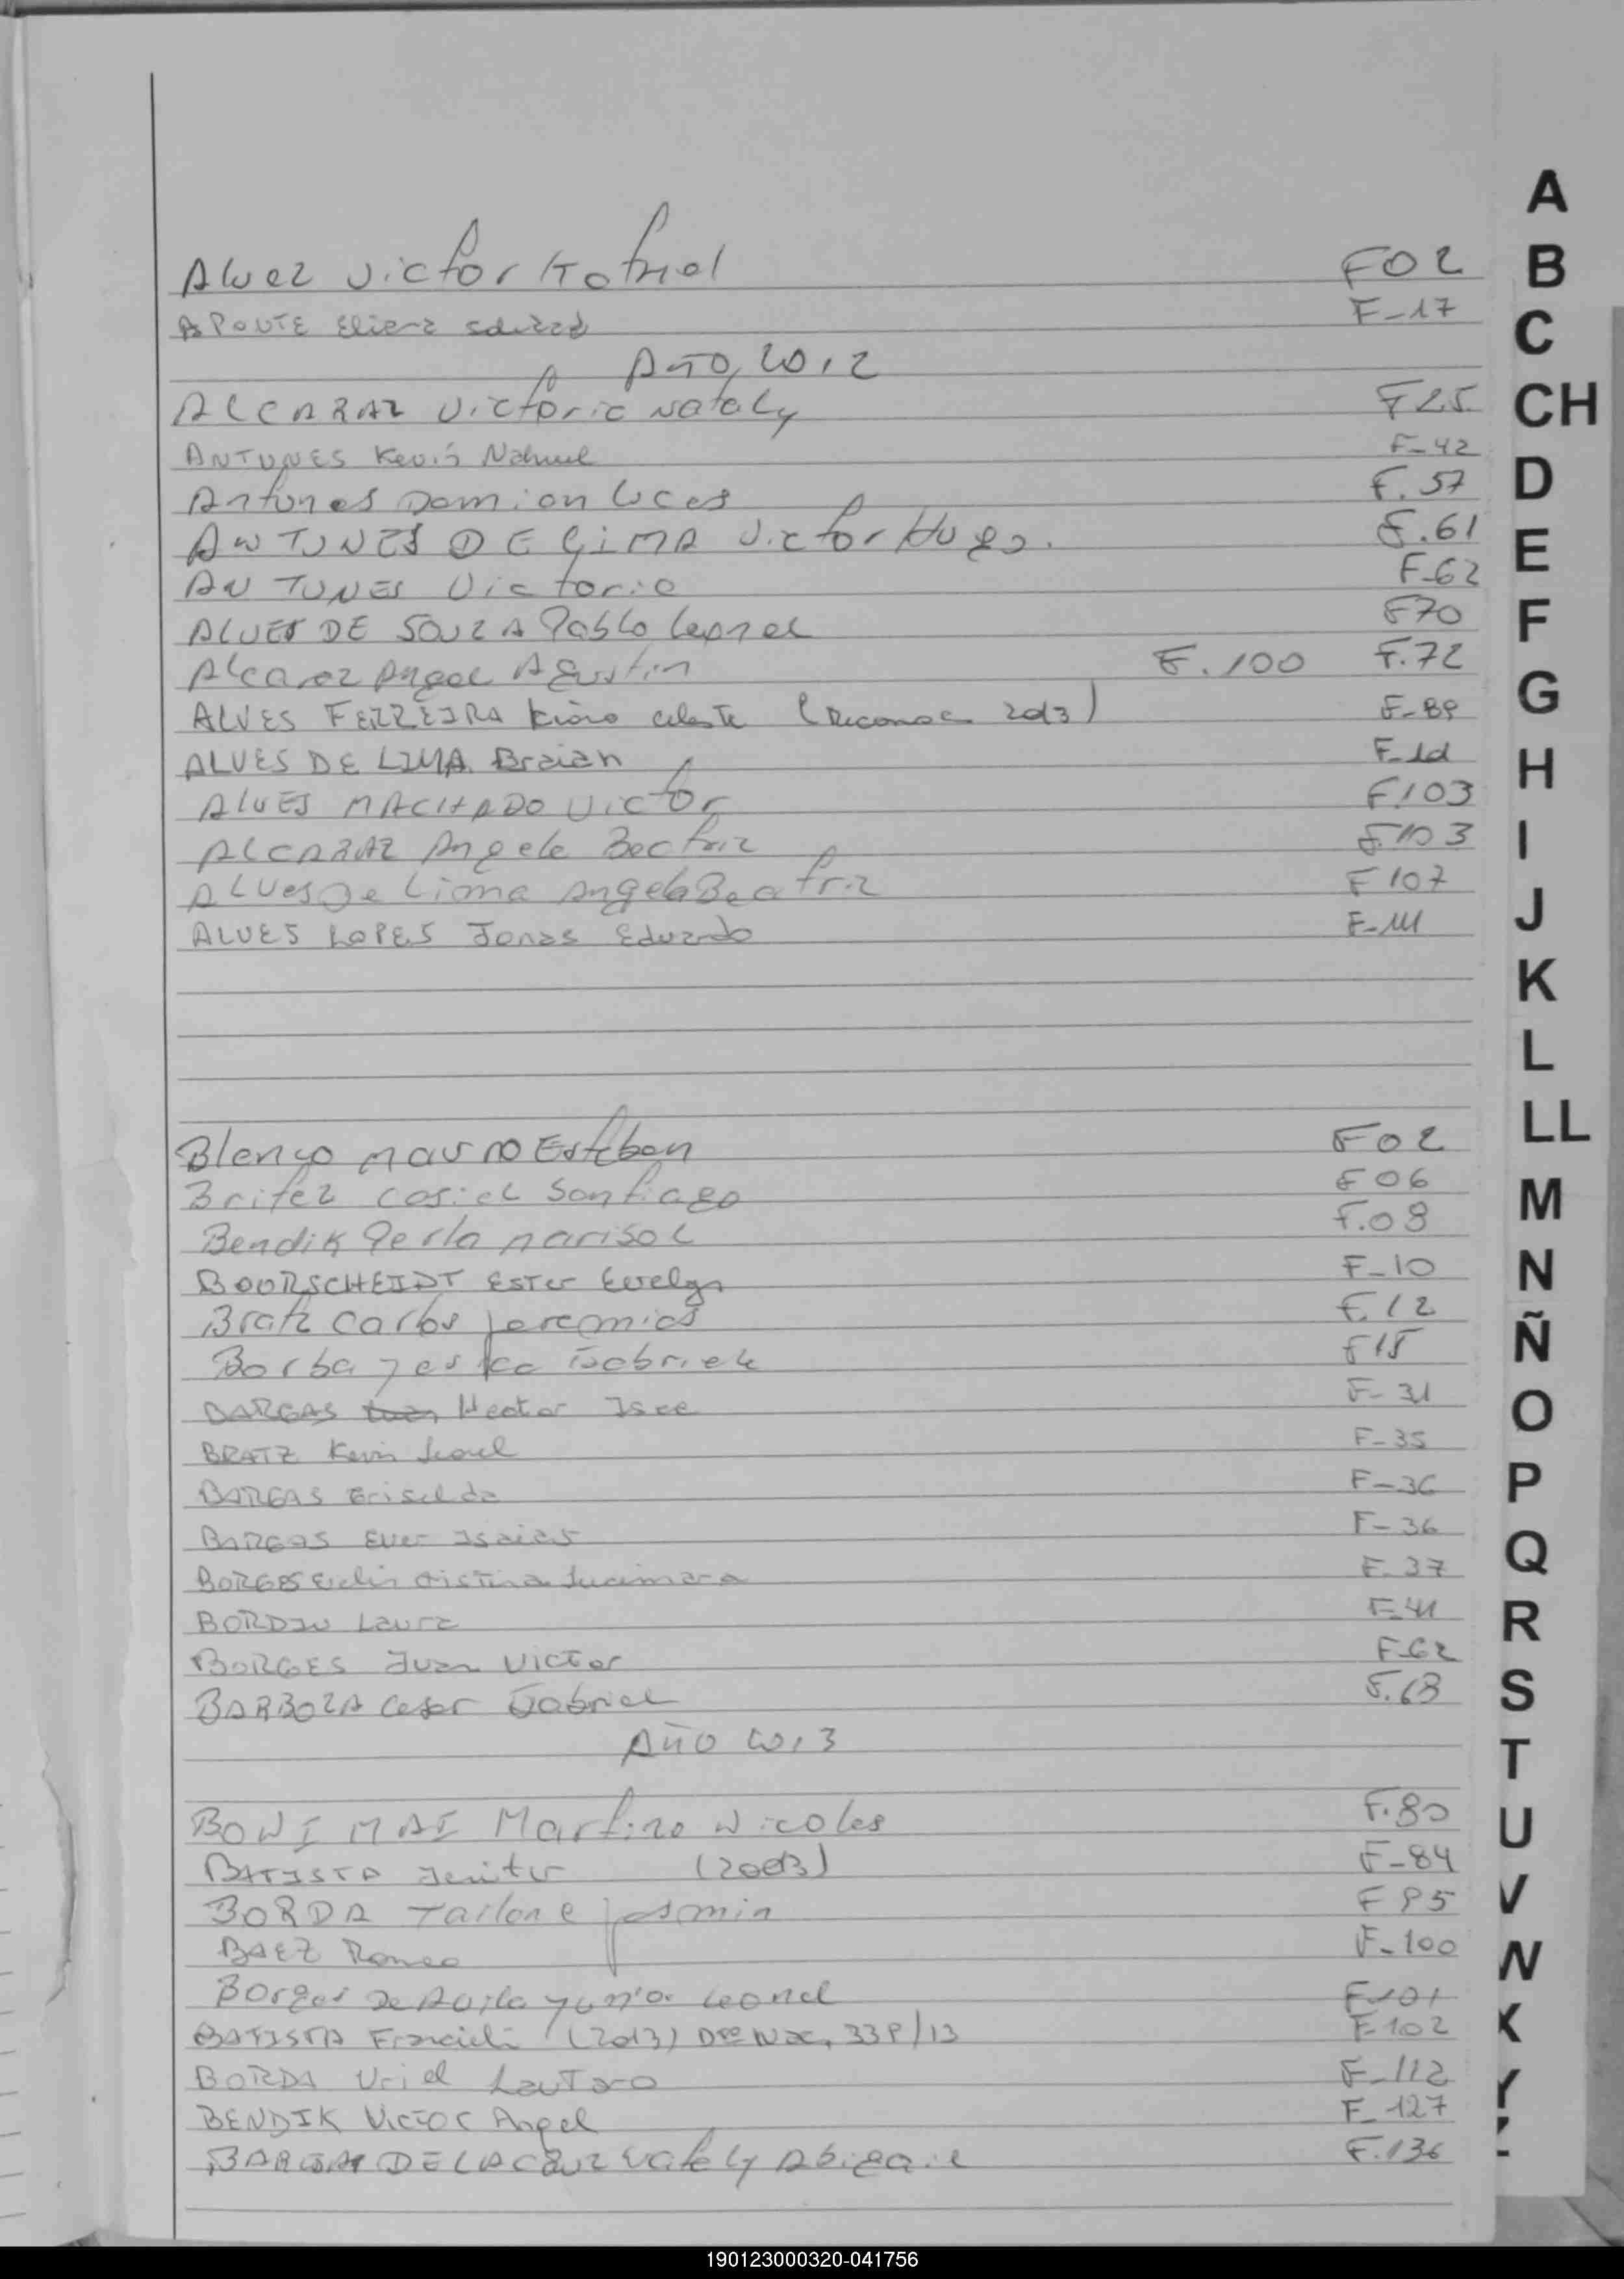 Alvez Victor Katriel F02
APONTE Eliana F-17
Año 2012
ALCARAZ Victoria Nataly F25
ANTUNES Kevin Nahuel F-42
Antunes Damian Lucas F.57
ANTUNES DE LIMA Victor Hugo. F.61
ANTUNES Victoria F-62
ALVES DE SOUZA Pablo Leonel F70
Alcaraz Angel Agustin F.100 F.72
ALVES FERREIRA Kiara Celeste (Reconoc. 2013) F-89
ALVES DE LIMA Braian F-11
ALVES MACHADO Victor F.103
ALCARAZ Angela Beatriz F.103
Alves De Lima Angela Beatriz F107
ALVES LOPES Jonas Eduardo F-111
Blanco Mauro Esteban F02
Britez Casiel Santiago F06
Bendik Perla Marisol F.08
BOORSCHEIDT Ester Evelyn F-10
Bratz Carlos Jeremias F.12
Borba Yesica Gabriela F15
BARGAS Hector F-31
BRATZ Kevin F-35
BARGAS Griselda F-36
BARGAS Ever Isaias F-36
BORGES Cristina Lucimara F-37
BORDIN Laura F-41
BORGES Juan Victor F-62
BARBOZA Cesar Gabriel F.63
Año 2013
BONI MAI Martino Nicolas F.80
BATISTA Jenifer (2013) F-84
BORDA Tailane Jasmin F95
BAEZ Romeo F-100
Borges De Avila Yunior Leonel F-101
BATISTA Francieli (2013) Dto Nac. 339/13 F-102
BORDA Uriel Lautaro F-112
BENDIK Victor Angel F-127
BARGAS DE LA CRUZ Nataly Abigail F.136
A
B
C
CH
D
E
F
G
H
I
J
K
L
LL
M
N
Ñ
O
P
Q
R
S
T
U
V
W
X
Y
Z
190123000320-041756